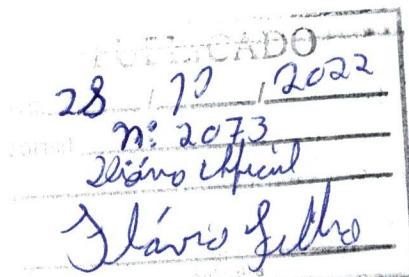 PUBLICADO
28 / 10 / 2022
nº: 2073
Diário Oficial
Flávio Filho